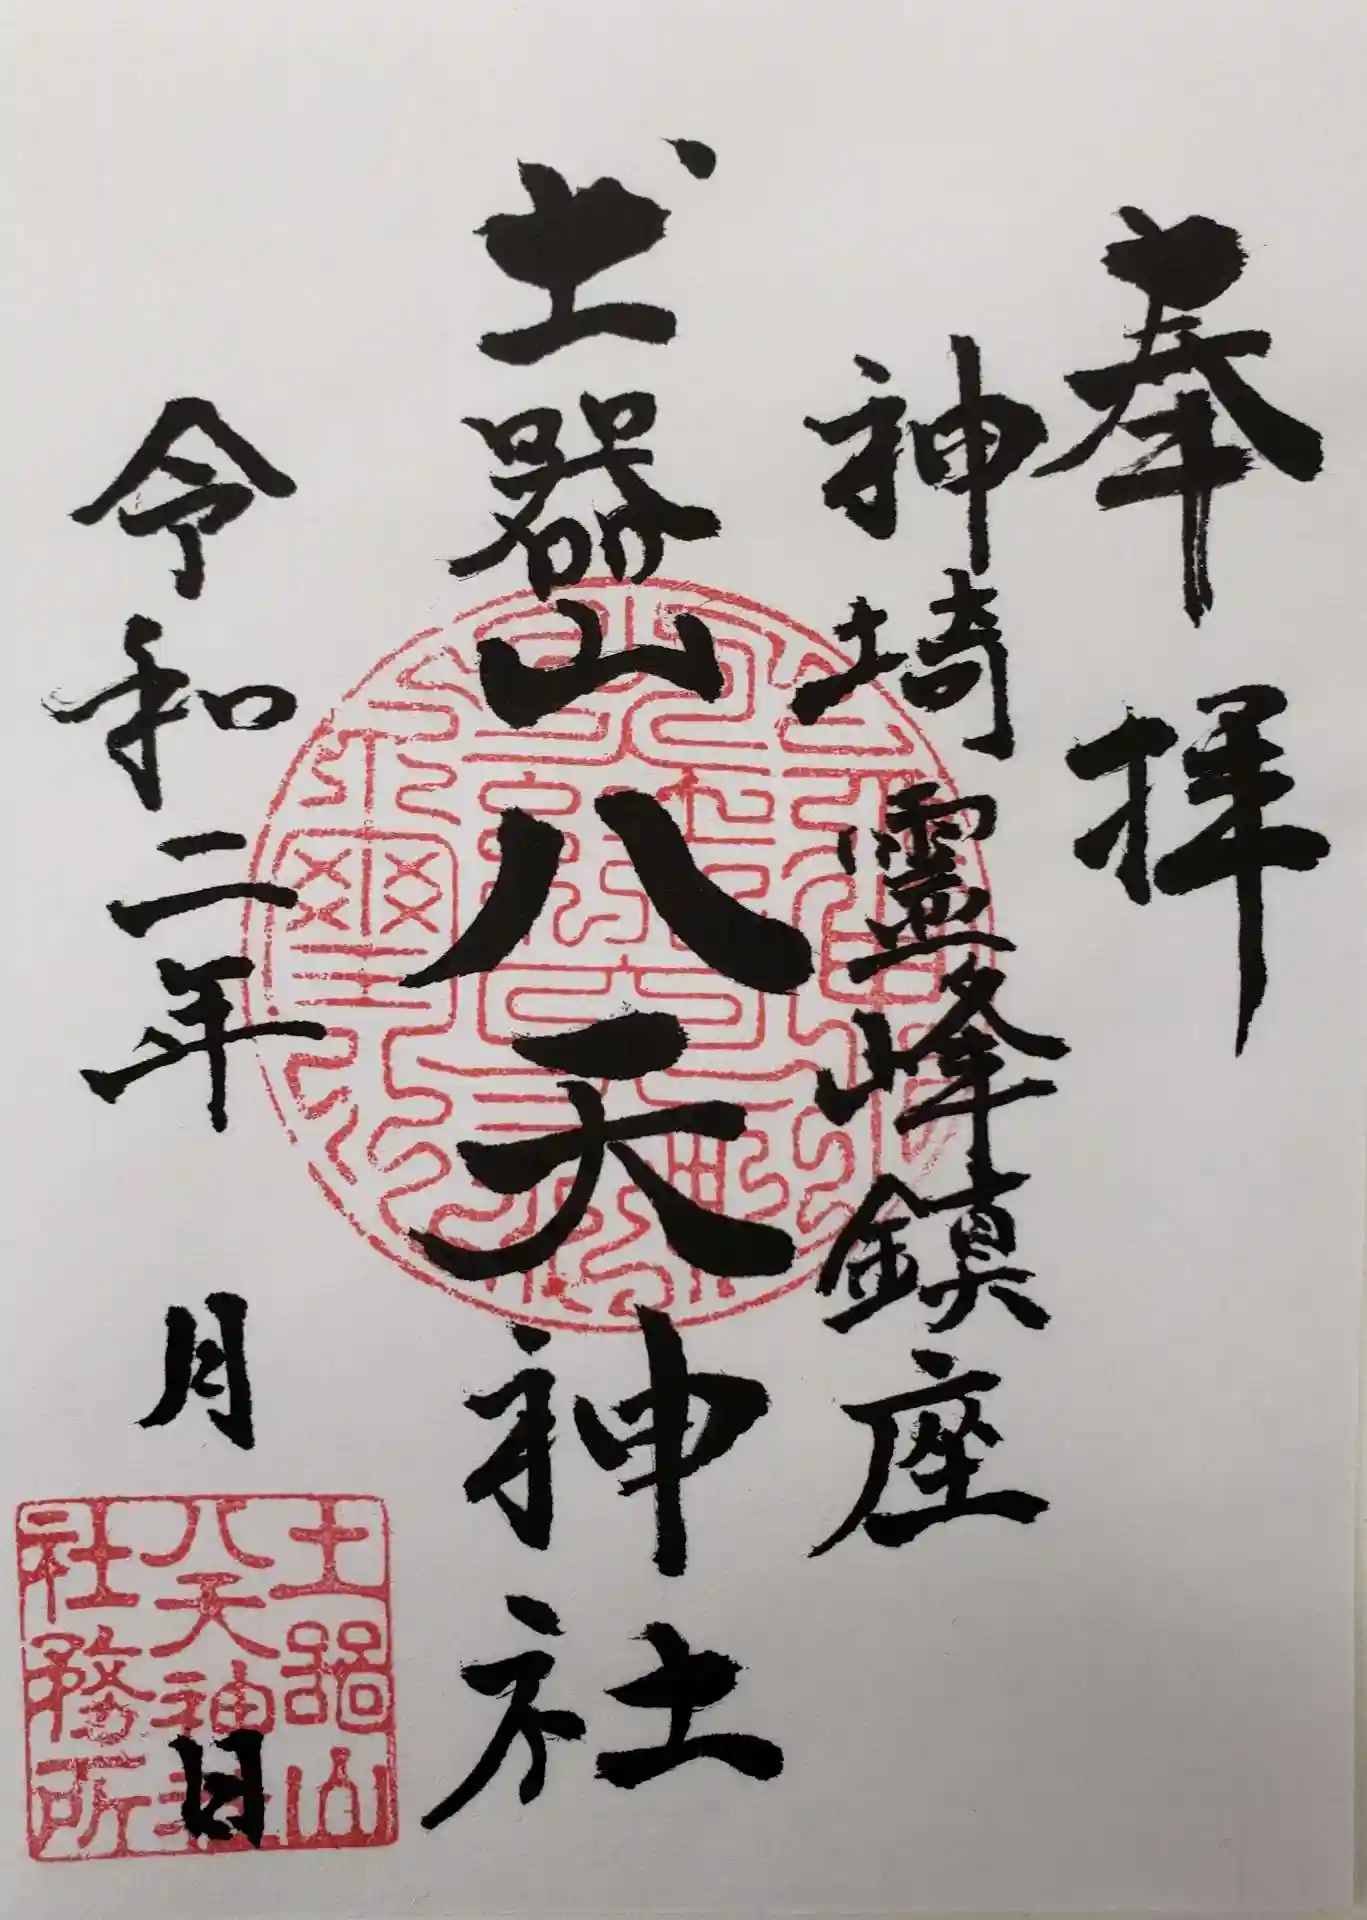 奉拝
神埼霊峰鎮座
土器山八天神社
令和二年 月 日
土器山
八天神社
社務所